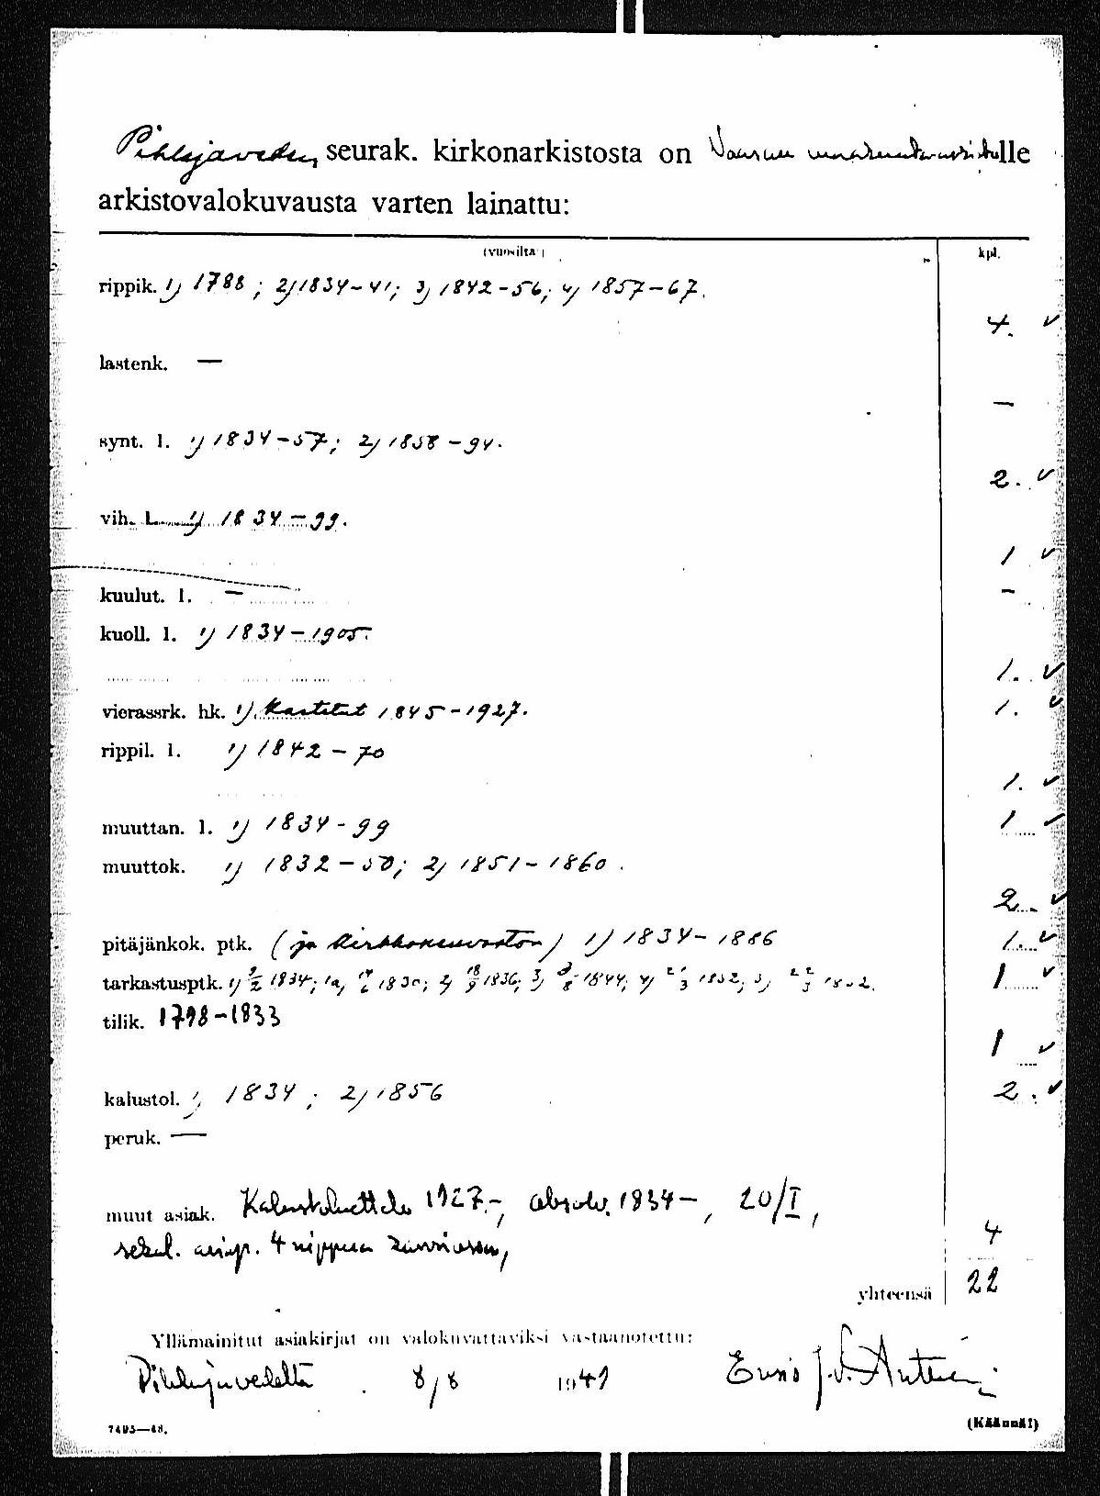 Pihlajaveden seurak. kirkonarkistosta on Vaasan lle
arkistovalokuvausta varten lainattu:
(vuosilta) kpl.
rippik. 1) 1788; 2) 1834-41; 3) 1842-56; 4) 1857-67.
4. ✓
lastenk. —
—
synt. l. 1) 1834-57; 2) 1858-94.
2. ✓
vih. l. 1) 1834-99.
1 ✓
kuulut. l. — -
kuoll. l. 1) 1834-1905.
1. ✓
vierassrk. hk. 1) Kastetut 1845-1927. 1. ✓
rippil. l. 1) 1842-70
1. ✓
muuttan. l. 1) 1834-99 1 ✓
muuttok. 1) 1832-50; 2) 1851-1860.
2. ✓
pitäjänkok. ptk. (ja kirkkoneuvoston) 1) 1834-1886 1. ✓
tarkastusptk. 1) 9/2 1834; 1a) 1830; 2) 18/9 1836; 3) /8 1844; 4) 2/3 1852; 5) 22/3 1 ✓
tilik. 1798-1833
1 ✓
kalustol. 1) 1834; 2) 1856 2. ✓
peruk. —
muut asiak. Kalustoluettelo 1927-, absolv. 1834-, 20/I,
sekal. 4 nippua 4
yhteensä 22
Yllämainitut asiakirjat on valokuvattaviksi vastaanotettu:
Pihlajavedeltä. 8/8 1949 J.V.
7493—48. (Käännä!)